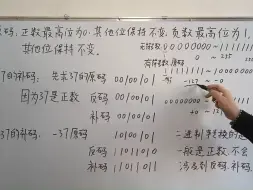 原码,正数最高位为0,其他位保持不变。负数最高位为1,
其他位保持不变。
无符号数 00000000 ~ 1111111
0 ~ 255
有符号数
11111111 ~ 10000
-127 ~ -0
37的补码: 先求37的原码 00100101
因为37是正数 反码 00100101
补码 00100101
00000000 ~
+0
-37的补码, -37原码
反码 11011010
补码 11011011
二进制转换的
一般是正数,不会
涉及到反码,补码